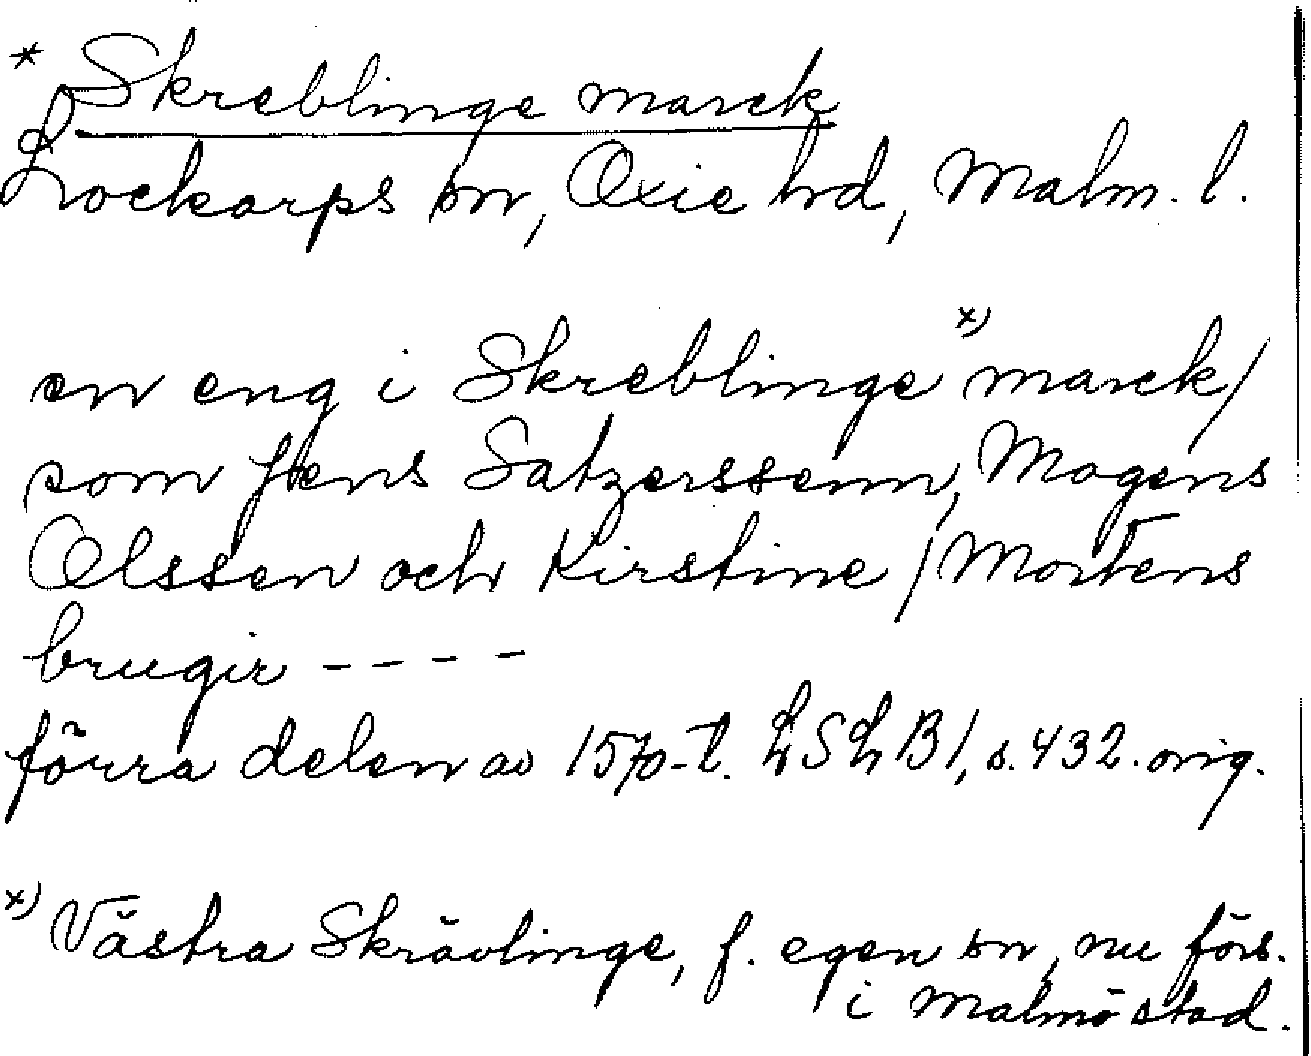 * Skreblinge marck
Lockarps sn, Oxie hd, Malm. l.
en eng i Skreblinge x) marck/
som Jens Satzerssenn, Mogens
Olssen och Kirstine / Mortens
brugir ----
förra delen av 1570-t. LSLB1, s. 432. orig.
x) Västra Skrävlinge, f. egen sn, nu förs.
i Malmö stad.